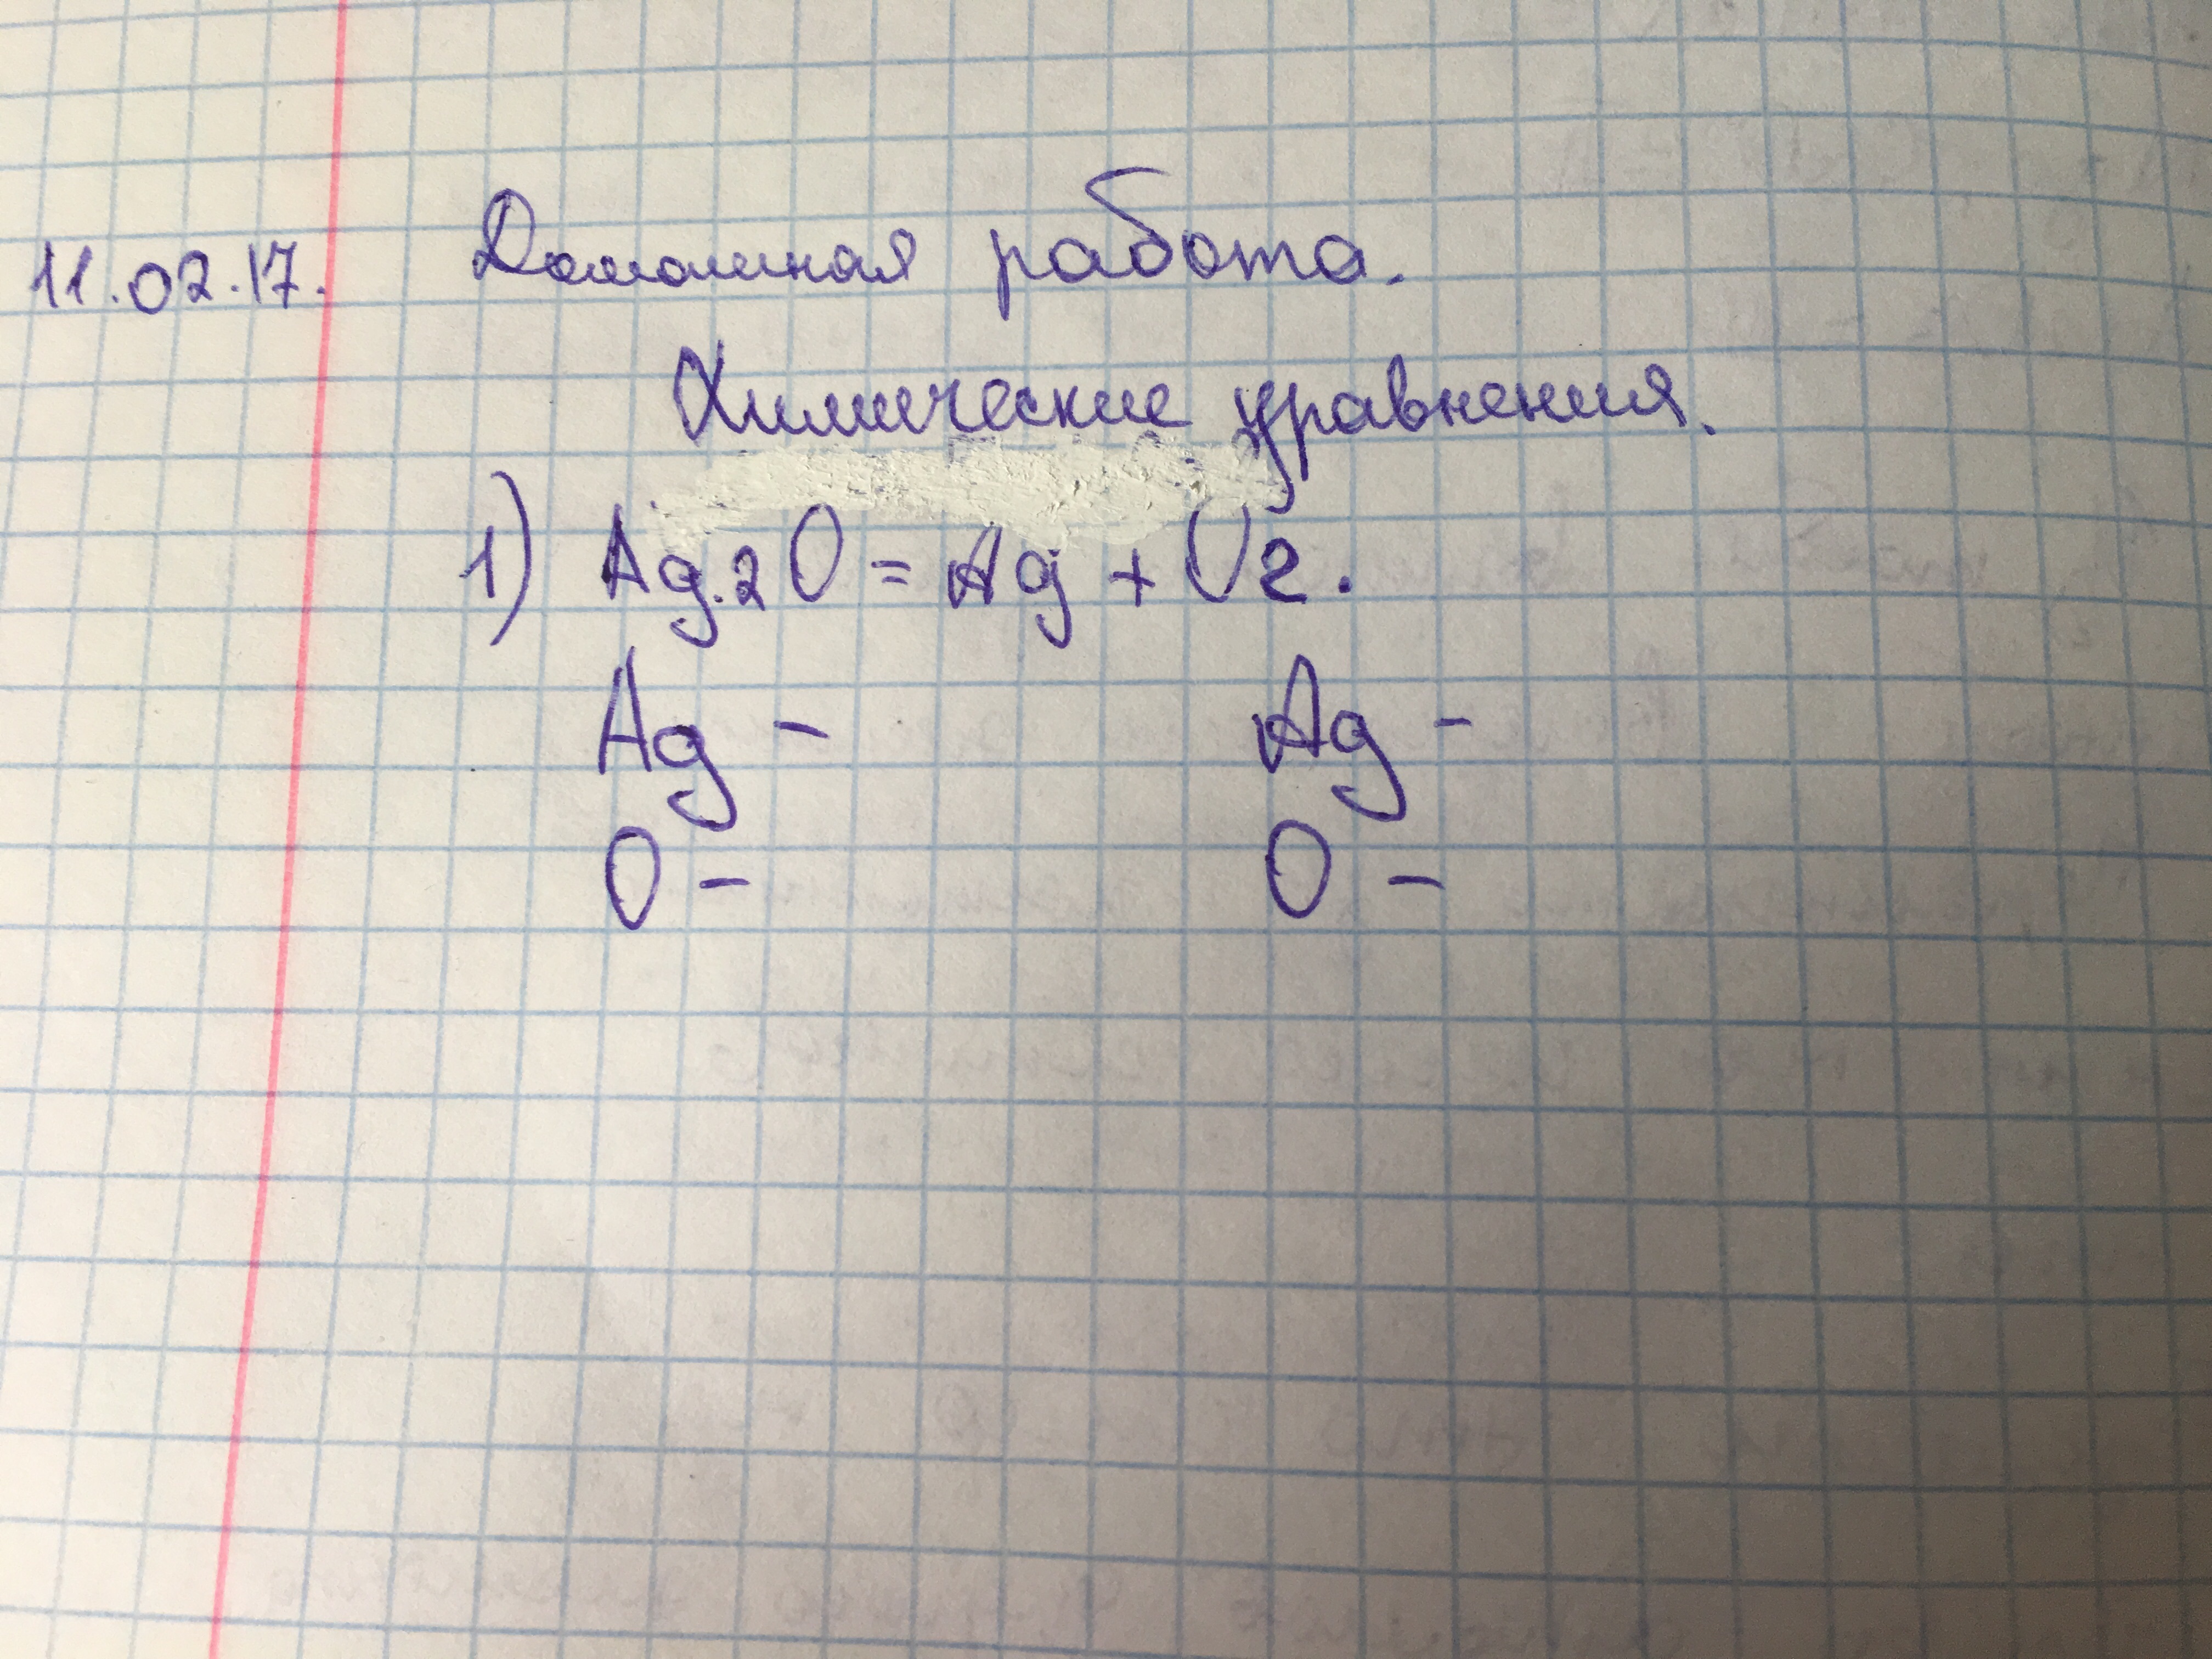 11.02.17. Домашная работа.
Химические уравнения.
1) Ag.2O = Ag + O2.
Ag - Ag -
O - O -